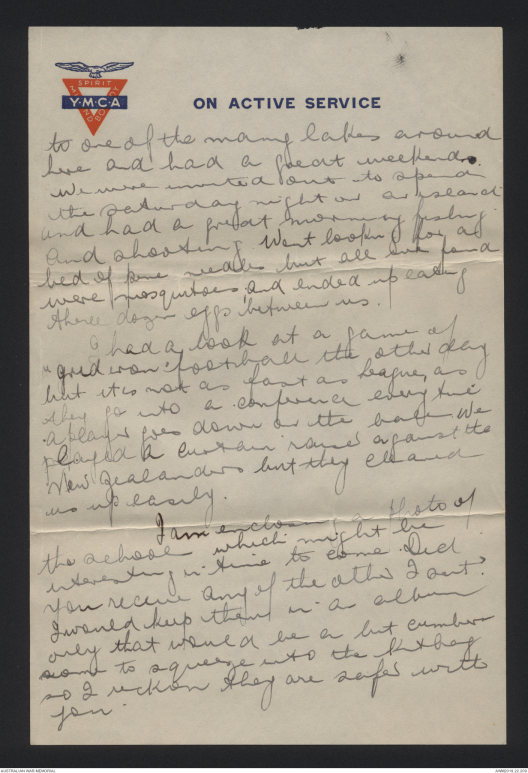 SPIRIT
MIND
BODY
Y·M·C·A
ON ACTIVE SERVICE
to one of the many lakes around
here and had a great weekend.
We were invited out to spend
the saturday night on a island
and had a great morning fishing
and shooting. Went looking for a
bed of pine needles but all we found
were mosquitoes and ended up eating
three dozen eggs between us.
I had a look at a game of
"gridiron" football the other day
but it is not as fast as league, as
they go into a conference every time
a player goes down on the ball. We
played a curtain raiser against the
New Zealanders but they cleaned
us up easily.
I am enclosing a photo of
the school which might be
interesting in time to come. Did
you receive any of the other I sent?
I would keep them in a album
only that would be a bit cumber
some to squeeze into the kitbag
so I reckon they are safer with
you.
AUSTRALIAN WAR MEMORIAL